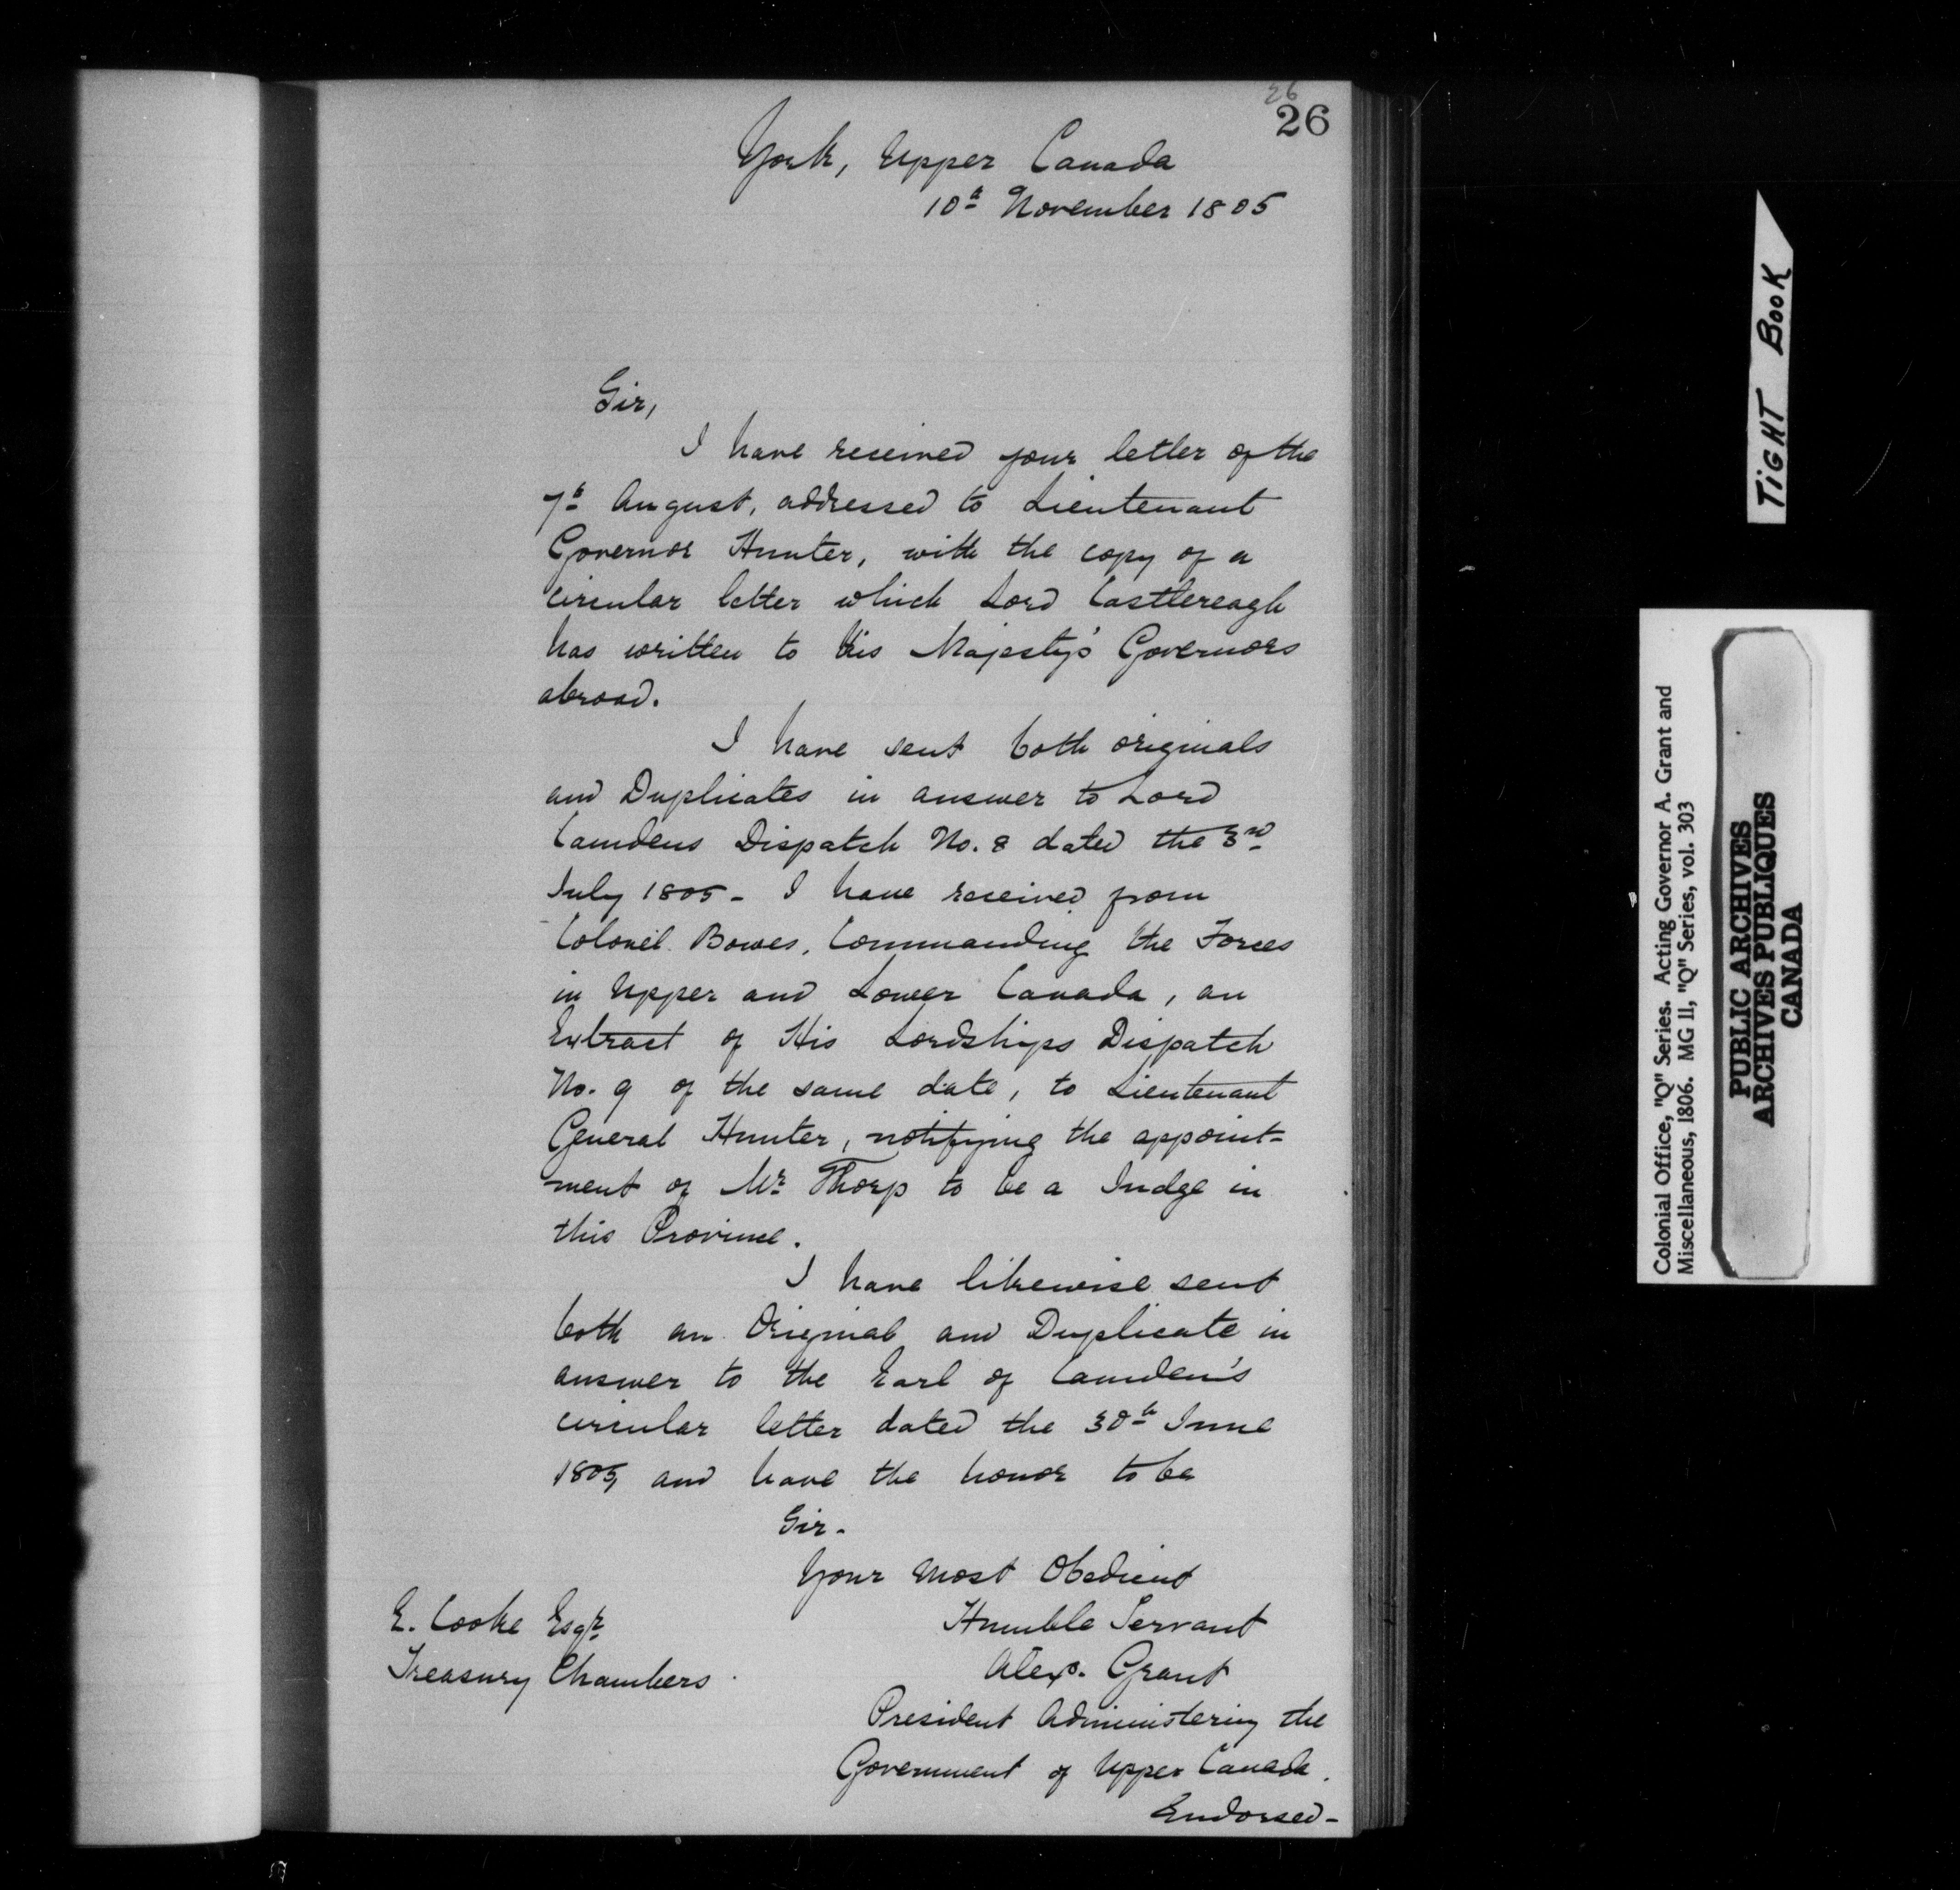 26
26
York, Upper Canada
10th November 1805
Sir,
I have received your letter of the
7th August, addressed to Lieutenant
Governor Hunter, with the copy of a
circular letter which Lord Castlereagh
has written to His Majesty's Governors
abroad.
I have sent both originals
and Duplicates in answer to Lord
Camdens Dispatch No. 8 dated the 3rd
July 1805 - I have received from
Colonel Bowes, Commanding the Forces
in Upper and Lower Canada, an
Extract of His Lordships Dispatch
No. 9 of the same date, to Lieutenant
General Hunter, notifying the appoint=
ment of Mr Thorp to be a Judge in
this Province.
I have likewise sent
both an Original and Duplicate in
answer to the Earl of Camden's
circular letter dated the 30th June
1805, and have the honor to be
Sir -
Your Most Obedient
Humble Servant
Alexr. Grant
President Administering the
Government of Upper Canada.
Endorsed -
E. Cooke Esqr
Treasury Chambers
TIGHT BOOK
Colonial Office, "Q" Series. Acting Governor A. Grant and
Miscellaneous, 1806. MG 11, "Q" Series, vol. 303
PUBLIC ARCHIVES
ARCHIVES PUBLIQUES
CANADA